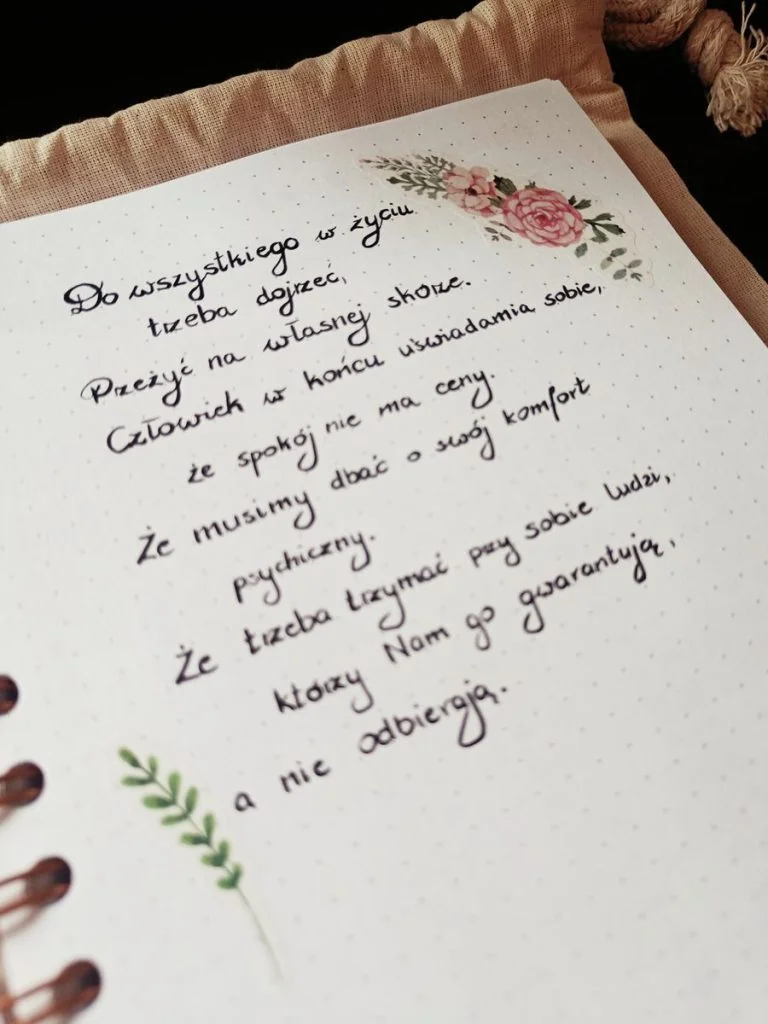 Do wszystkiego w życiu
trzeba dojrzeć,
Przeżyć na własnej skórze.
Człowiek w końcu uświadamia sobie,
że spokój nie ma ceny.
Że musimy dbać o swój komfort
psychiczny.
Że trzeba trzymać przy sobie ludzi,
którzy Nam go gwarantują,
a nie odbierają.